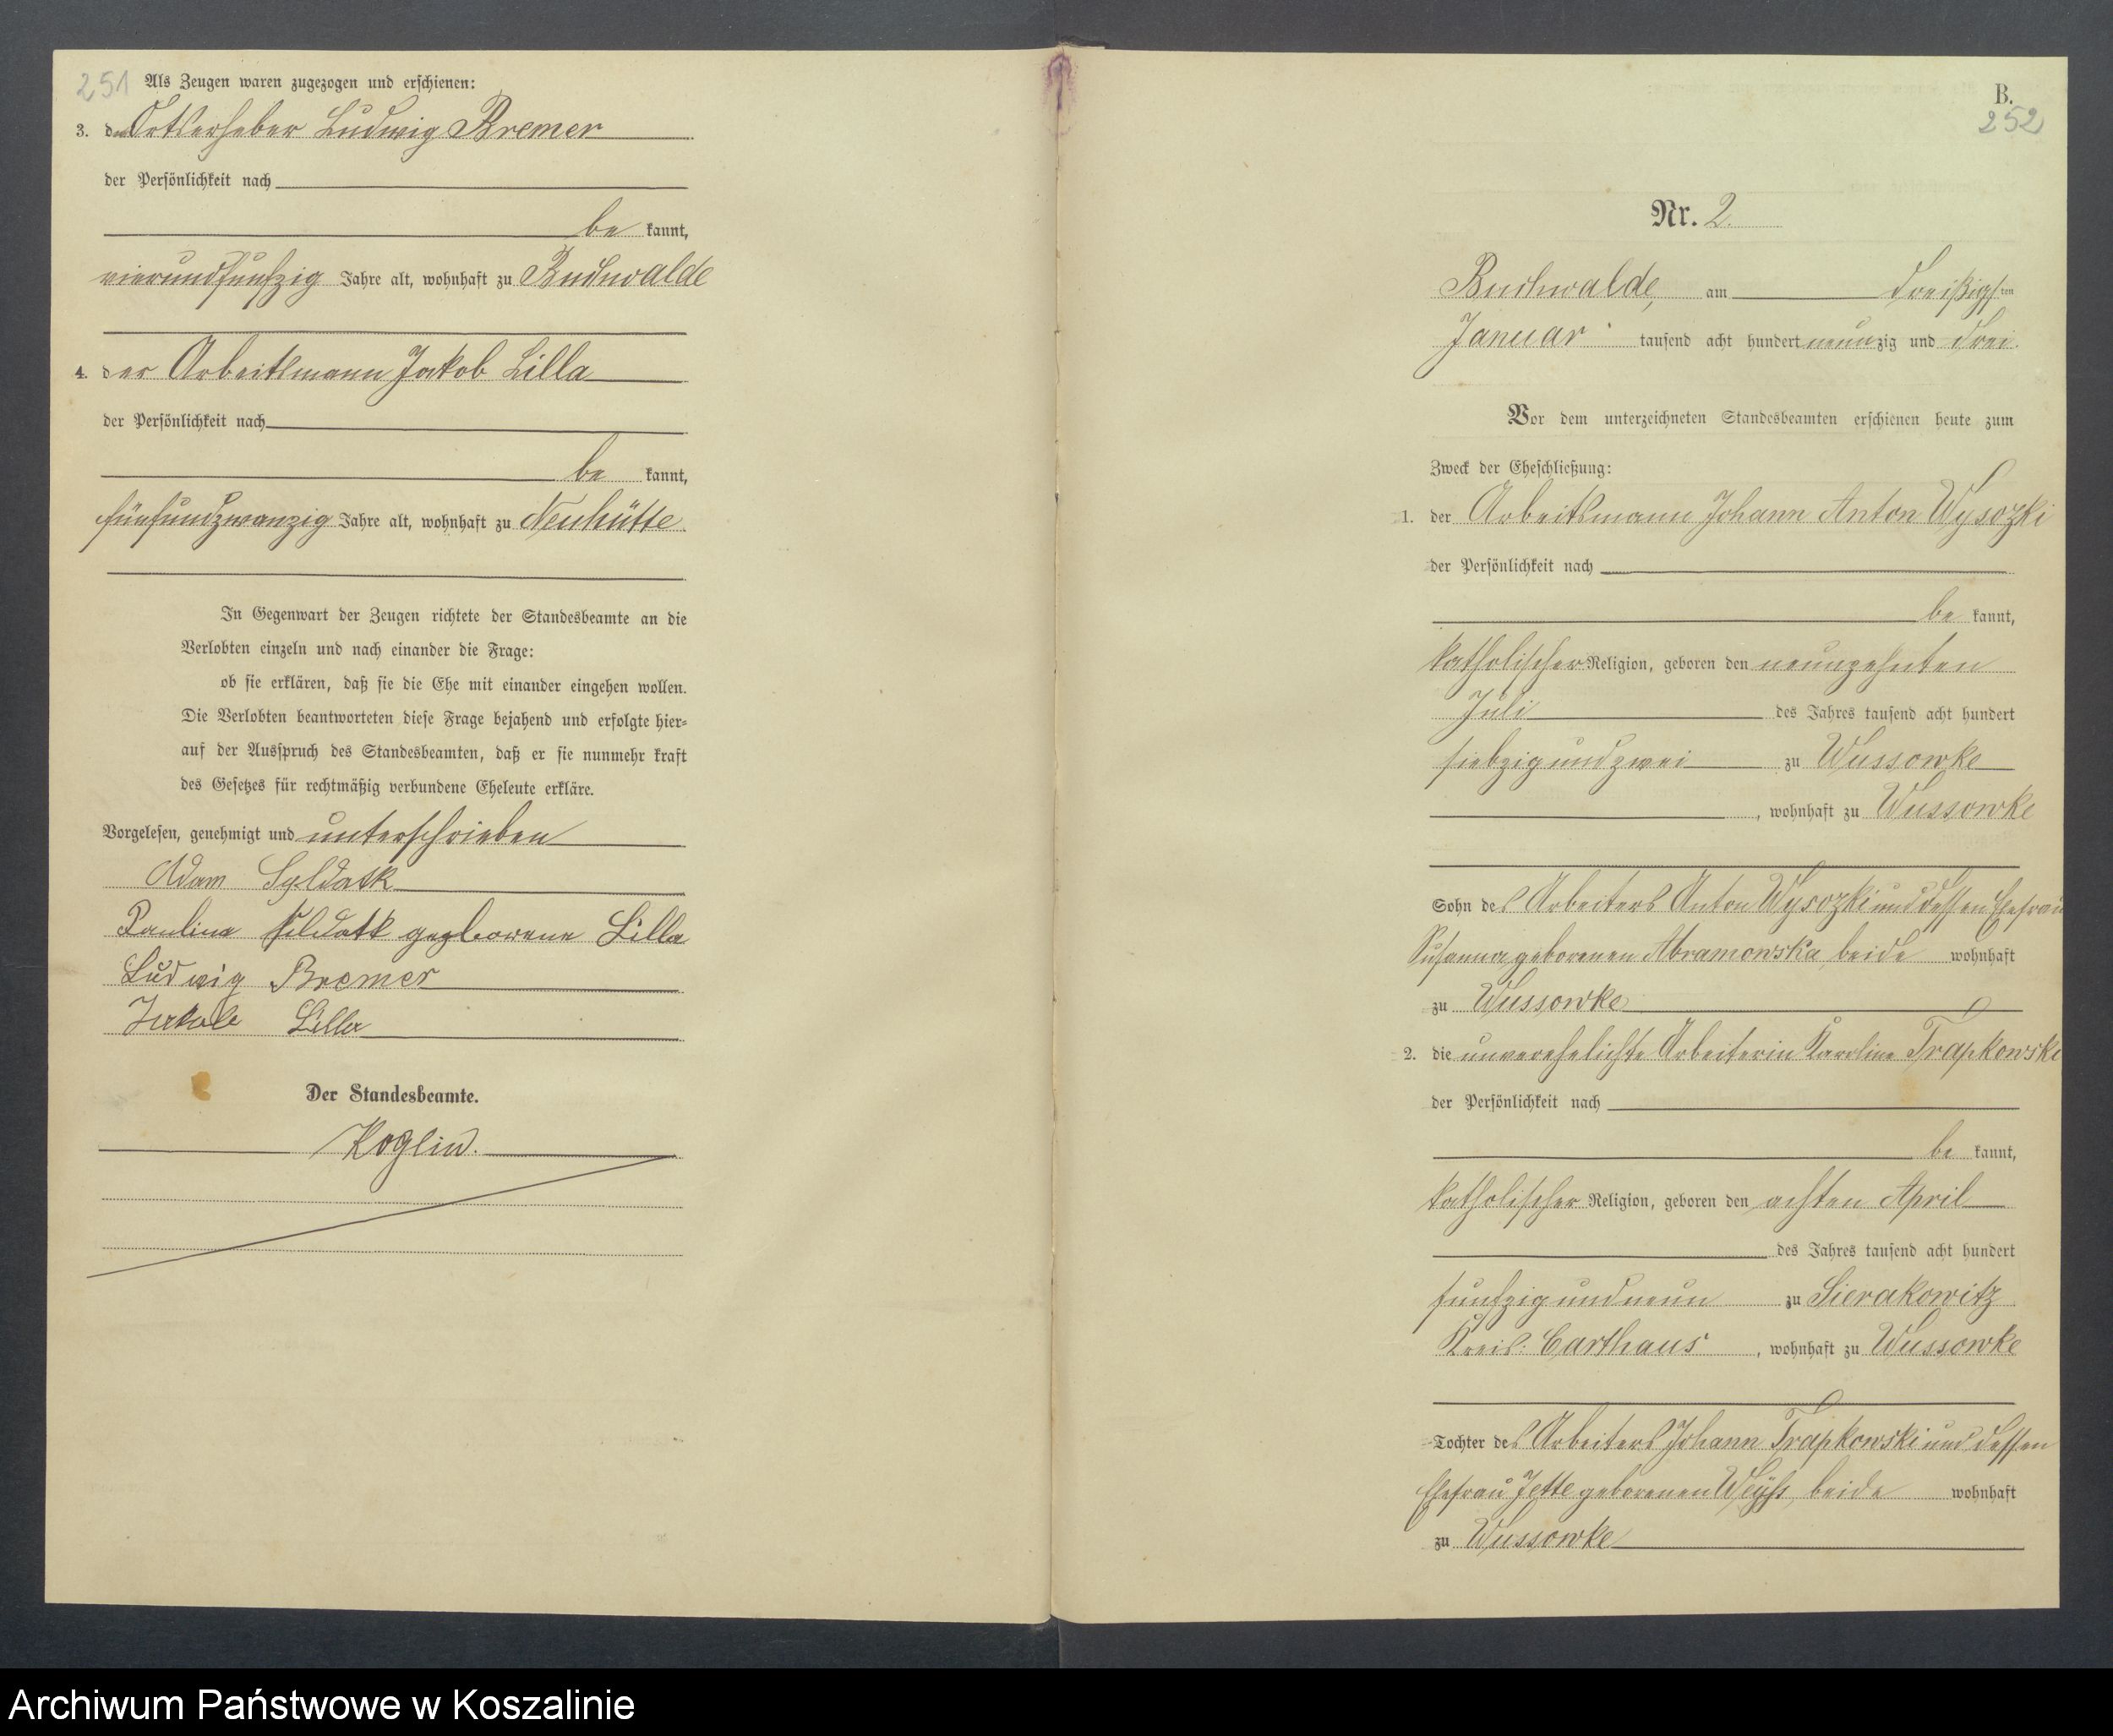 251
Als Zeugen waren zugezogen und erschienen:
3. der Ortserheber Ludwig Bremer
der Persönlichkeit nach
be kannt,
vierundfunfzig Jahre alt, wohnhaft zu Buchwalde
4. der Arbeitsmann Jakob Lilla
der Persönlichkeit nach
be kannt,
fünfundzwanzig Jahre alt, wohnhaft zu Neuhütte
In Gegenwart der Zeugen richtete der Standesbeamte an die
Verlobten einzeln und nach einander die Frage:
ob sie erklären, daß sie die Ehe mit einander eingehen wollen.
Die Verlobten beantworteten diese Frage bejahend und erfolgte hier-
auf der Ausspruch des Standesbeamten, daß er sie nunmehr kraft
des Gesetzes für rechtmäßig verbundene Eheleute erkläre.
Vorgelesen, genehmigt und unterschrieben
Adam Syldatk
Paulina geborene Lilla
Ludwig Bremer
Jakob Lilla
Der Standesbeamte.
Koglin.
B.
252
Nr. 2.
Buchwalde, am dreißigsten
Januar tausend acht hundert neunzig und drei.
Vor dem unterzeichneten Standesbeamten erschienen heute zum
Zweck der Eheschließung:
1. der Arbeitsmann Johann Anton Wysozki
der Persönlichkeit nach
be kannt,
katholischer Religion, geboren den neunzehnten
Juli des Jahres tausend acht hundert
siebzig und zwei zu Wussowke
, wohnhaft zu Wussowke
Sohn des Arbeiters Anton Wysozki und dessen Ehefrau
Susanna geborenen Abramowska, beide wohnhaft
zu Wussowke
2. die unverehelichte Arbeiterin Karoline Trapkowski
der Persönlichkeit nach
be kannt,
katholischer Religion, geboren den achten April
des Jahres tausend acht hundert
funfzig und neun zu Sierakowitz
Kreis Carthaus, wohnhaft zu Wussowke
Tochter des Arbeiters Johann Trapkowski und dessen
Ehefrau Jette geborenen beide wohnhaft
zu Wussowke
Archiwum Państwowe w Koszalinie